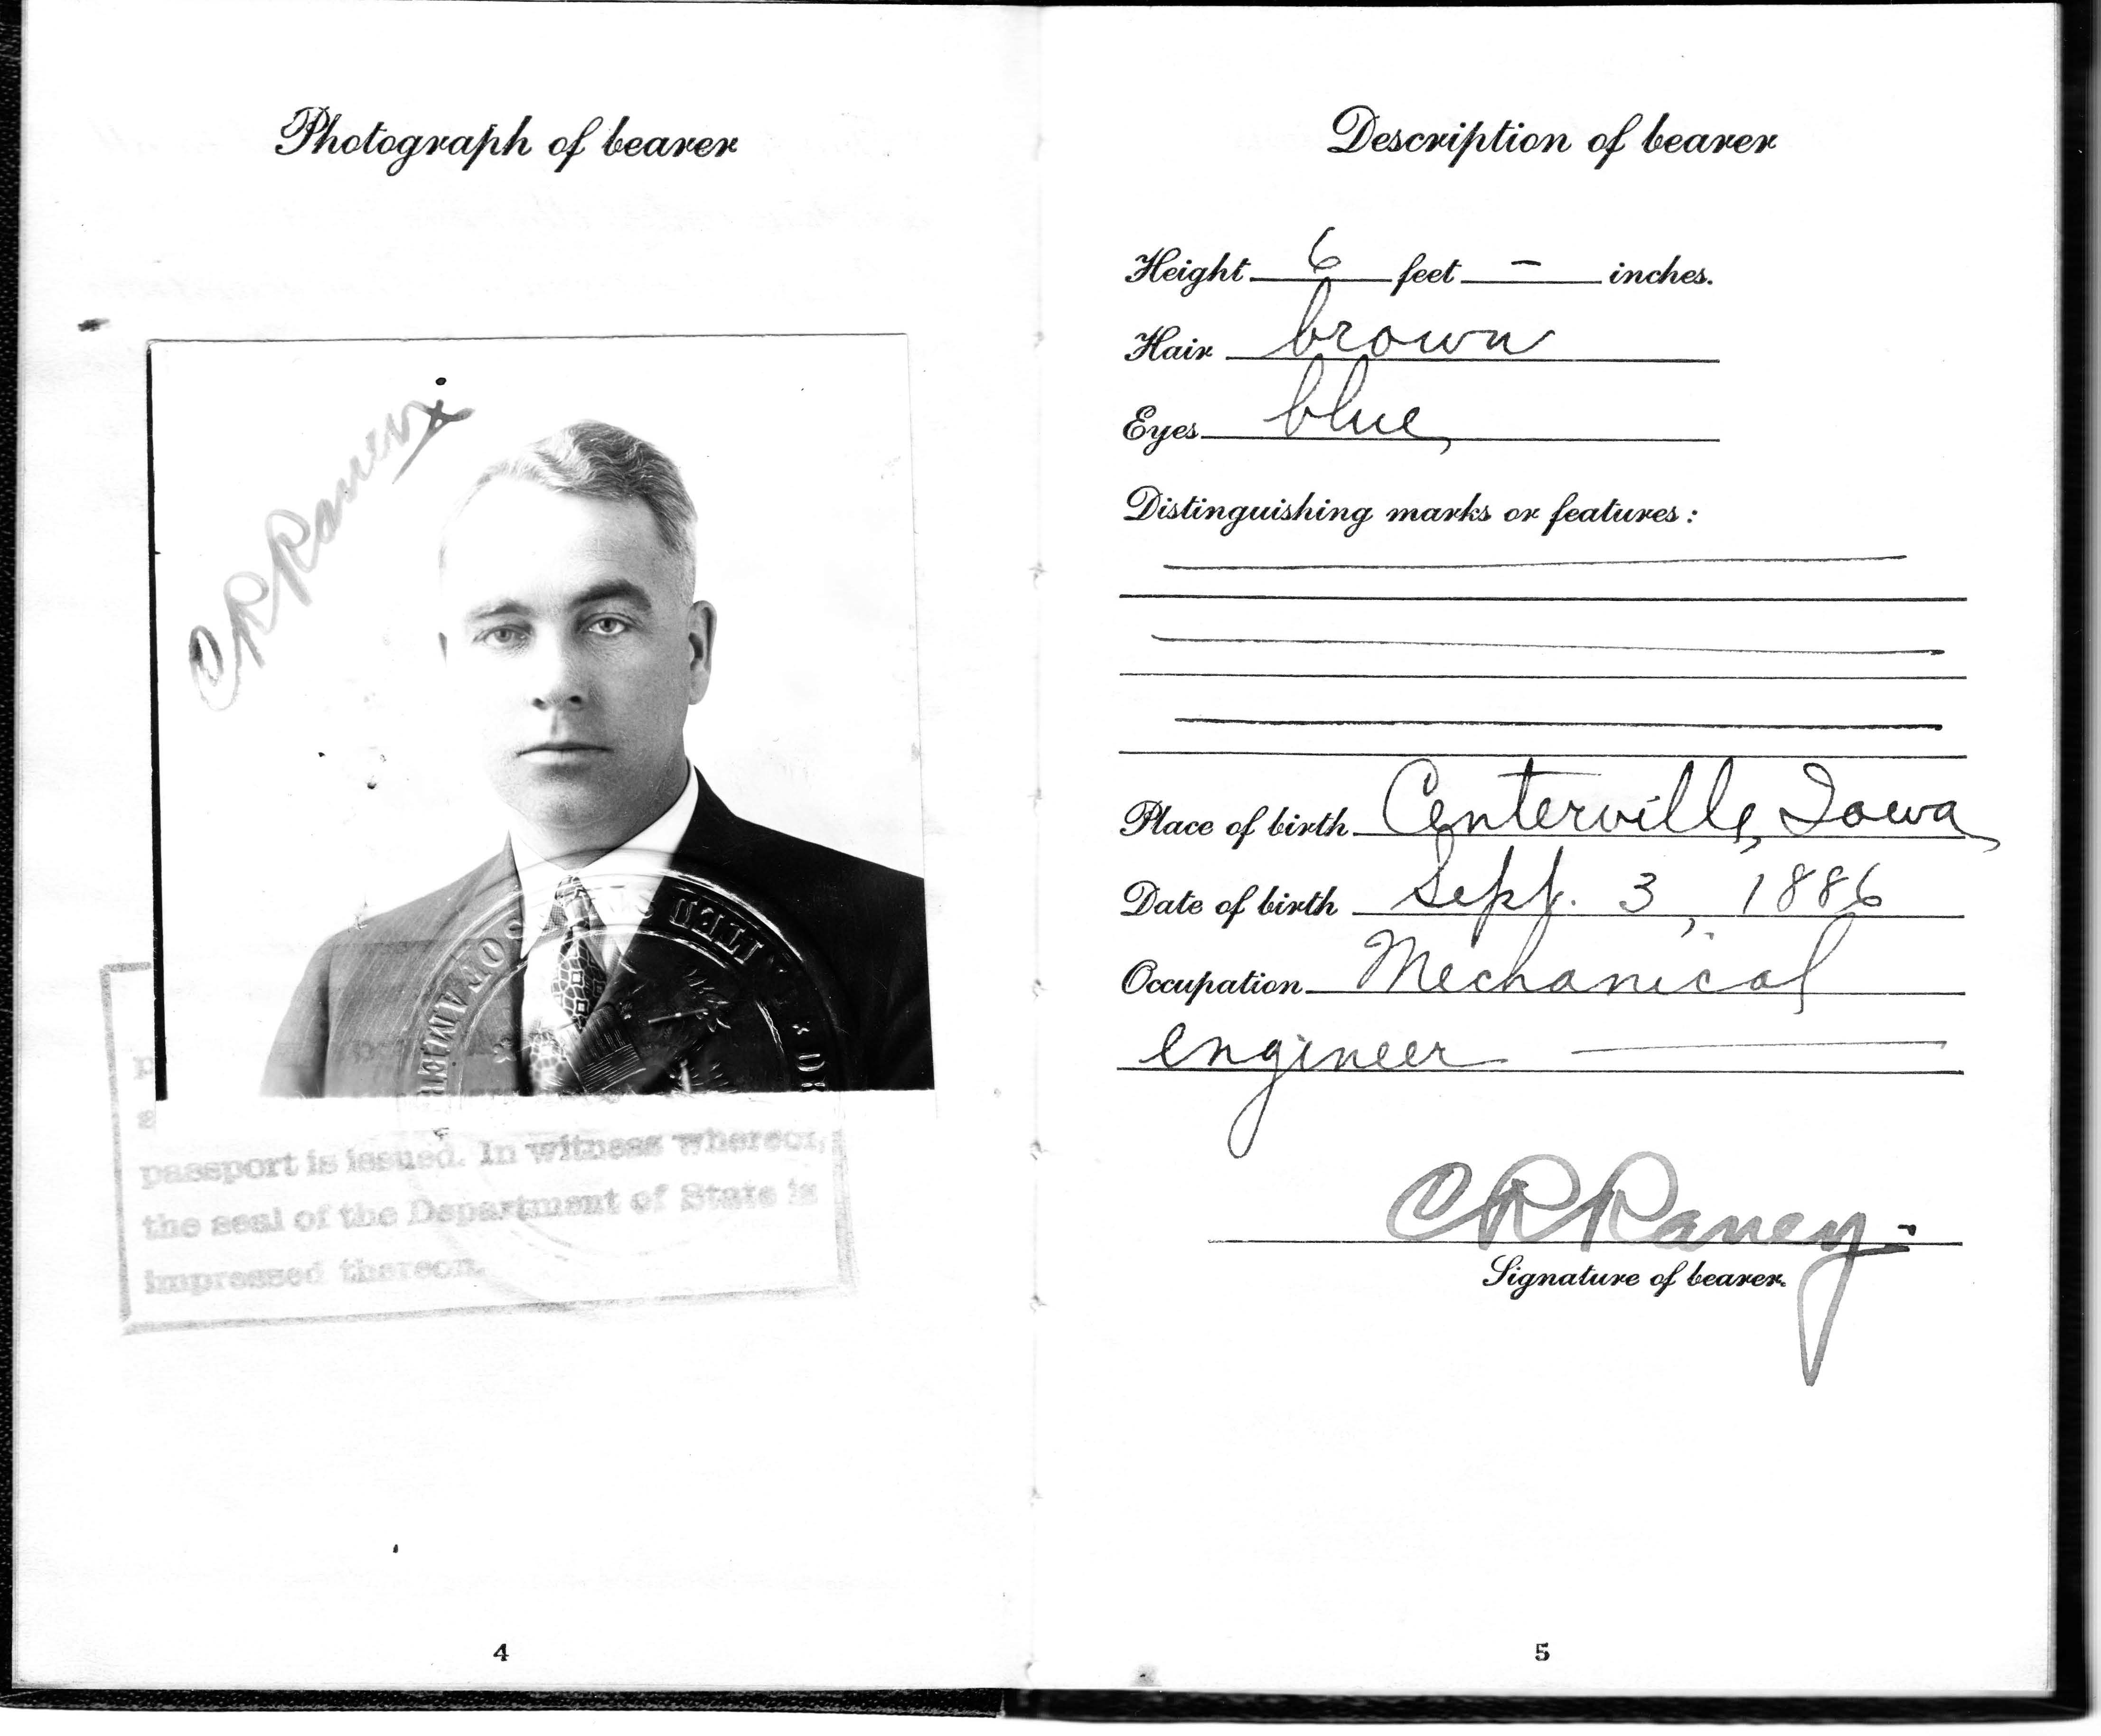 Photograph of bearer
C R Raney
OF AMERI
p
s
passport is issued. In witness whereof,
the seal of the Department of State is
impressed thereon.
4
Description of bearer
Height 6 feet – inches.
Hair brown
Eyes blue
Distinguishing marks or features:
Place of birth Centerville, Iowa
Date of birth Sept. 3, 1886
Occupation Mechanical
engineer
C R Raney
Signature of bearer.
5